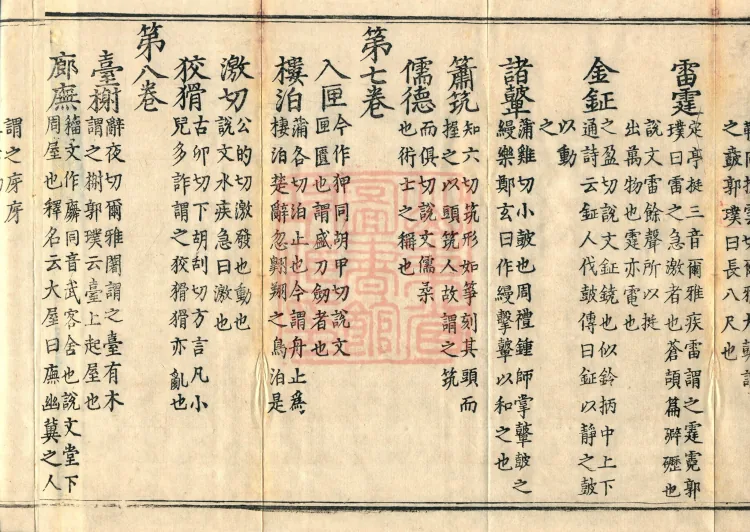 之鼖鼓郭璞曰長八尺也
雷霆
定亭挺三音爾雅疾雷謂之霆霓郭
璞曰雷之急激者也蒼頡篇霹靂也
說文雷餘聲所以挺
出萬物也霆亦電也
金鉦
之盈切說文鉦鐃也似鈴柄中上下
通詩云鉦人伐鼓傳曰鉦以靜之鼓
以動
之
諸鼙
蒲雞切小鼓也周禮鍾師掌鼙鼓之
縵樂鄭玄曰作縵擊鼙以和之也
簫筑
知六切筑形如箏刻其頭而
握之以頭筑人故謂之筑
儒德
而俱切說文儒柔
也術士之稱也
第七卷
入匣
今作狎同胡甲切說文
匣匱也謂盛刀劒者也
樓泊
蒲各切泊止也今謂舟止為
棲泊楚辭忽翺翔之鳥泊是
激切
公的切激發也動也
說文水疾急曰激也
狡猾
古卯切下胡刮切方言凡小
兒多詐謂之狡猾猾亦亂也
第八卷
臺榭
辭夜切爾雅闍謂之臺有木
謂之榭郭璞云臺上起屋也
廊廡
籀文作廡同音武客舍也說文堂下
周屋也釋名云大屋曰廡幽冀之人
謂之庌庌